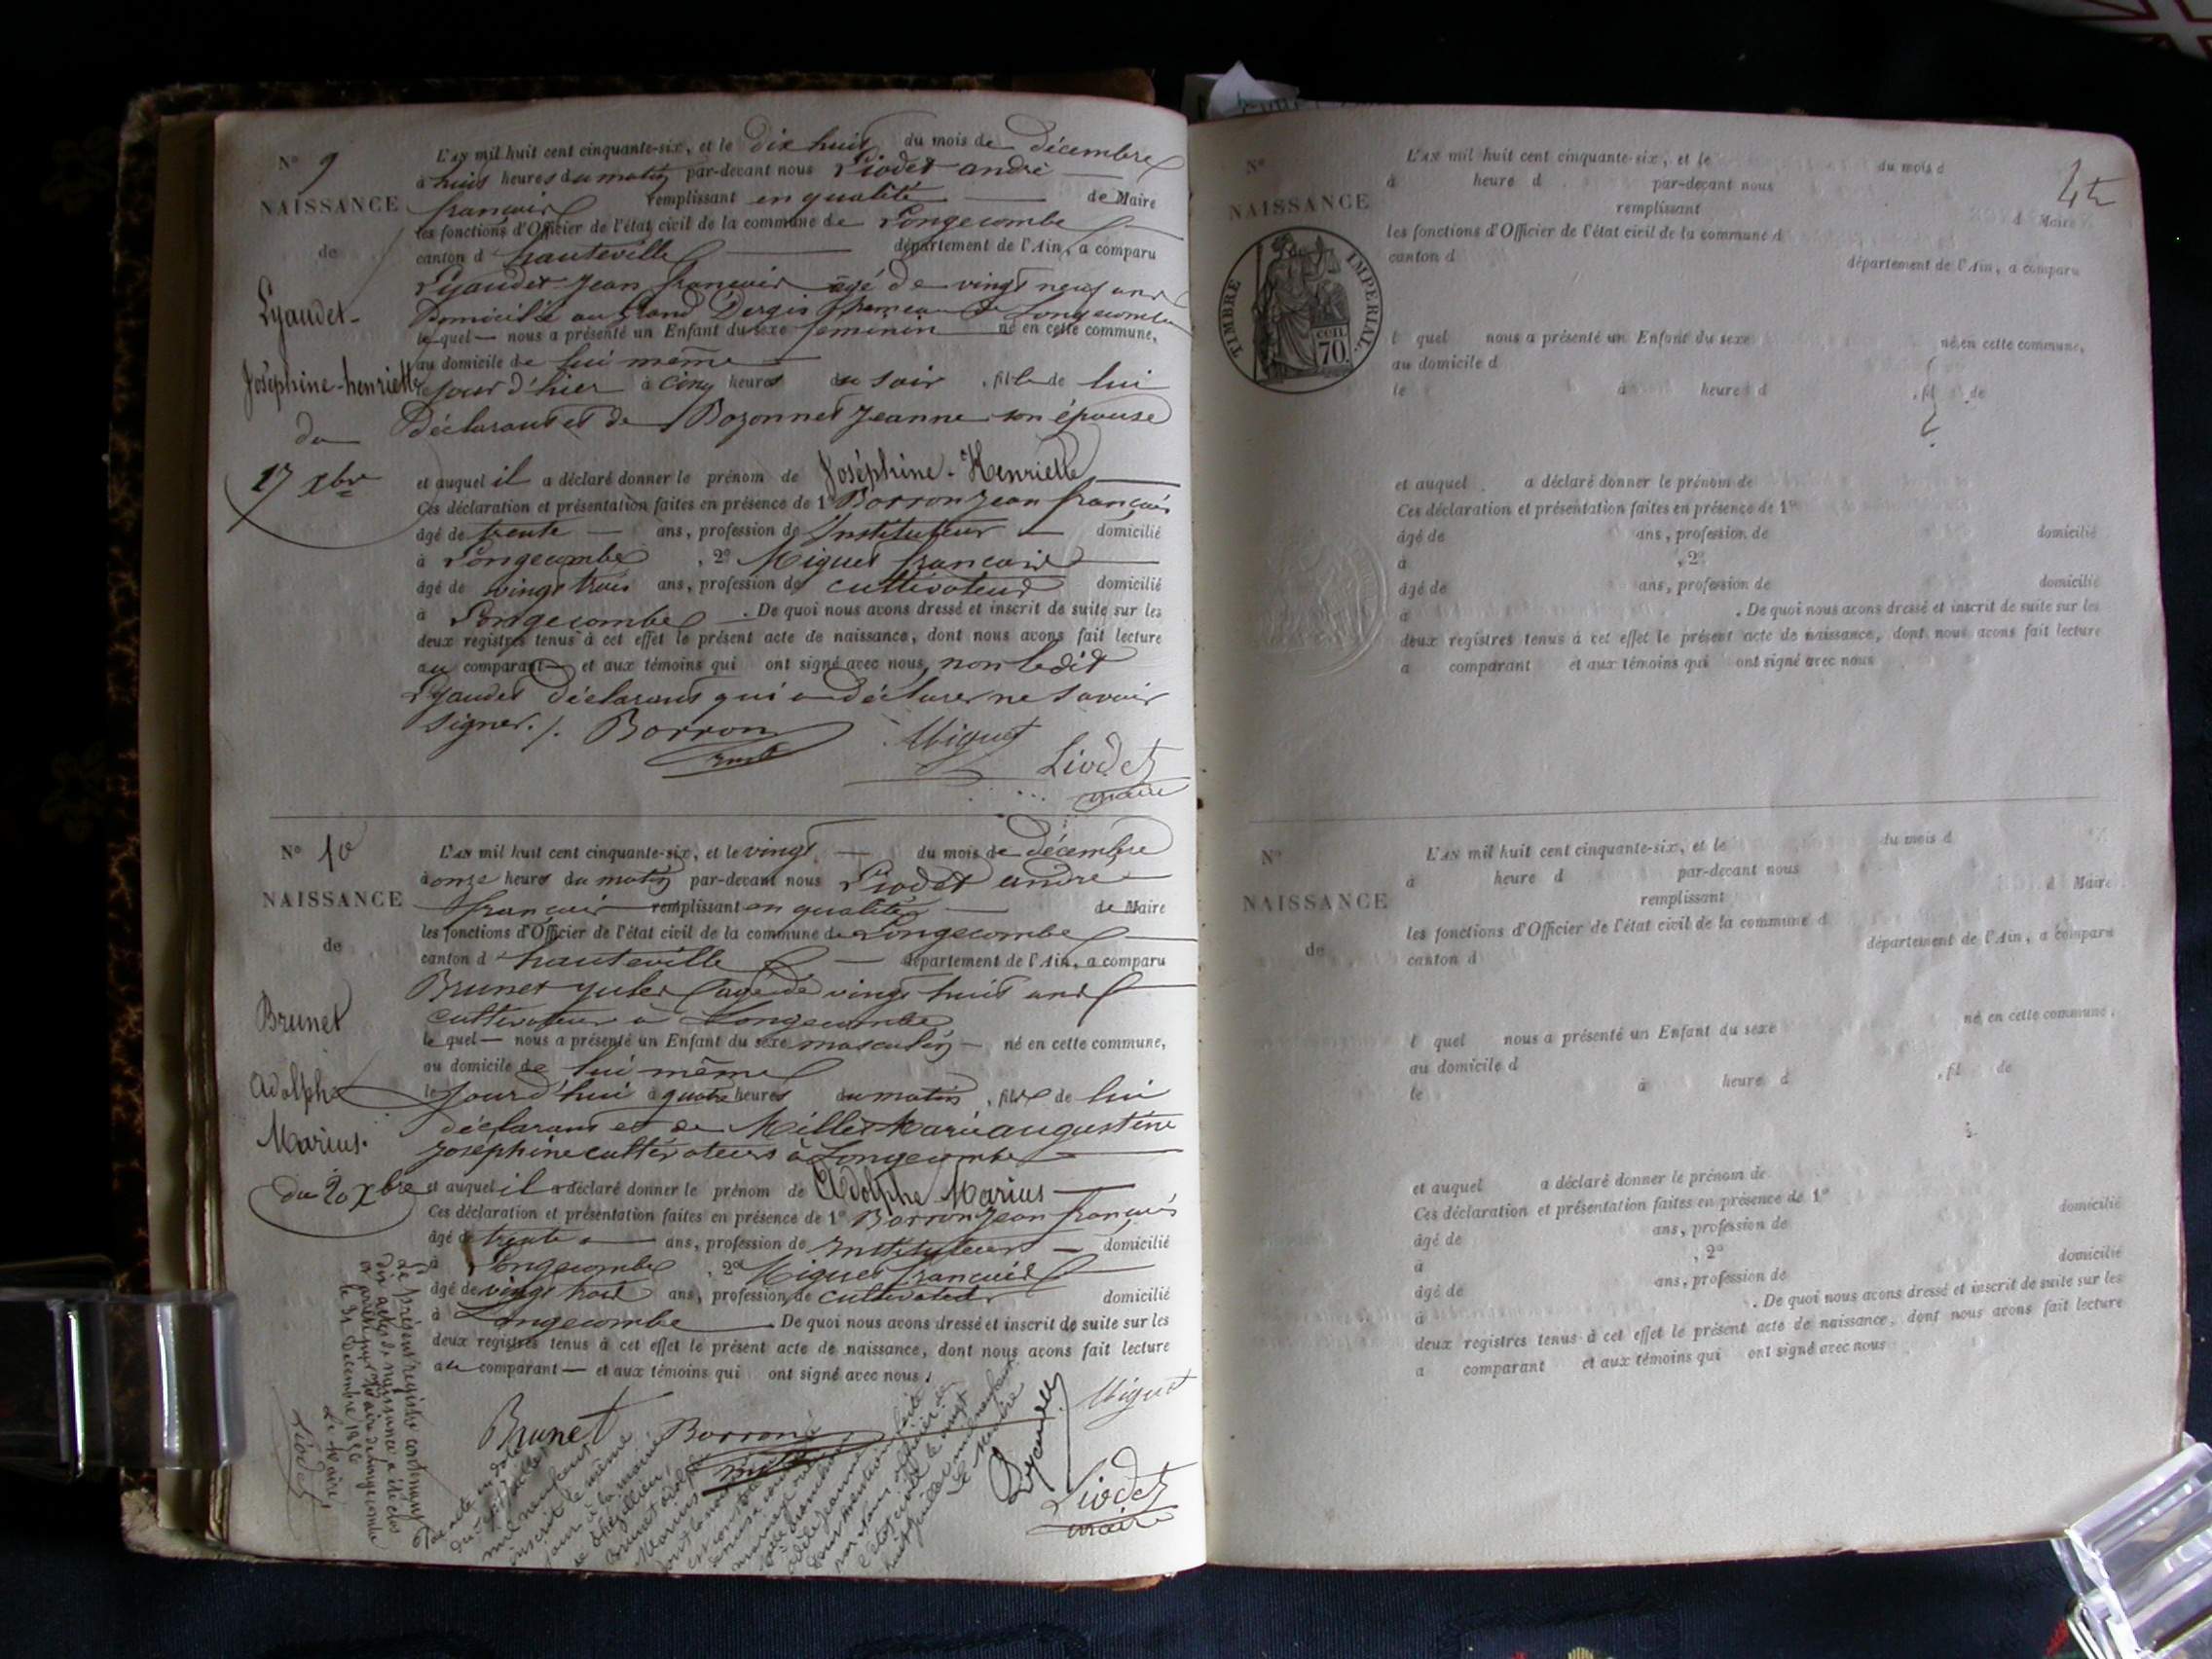 N° 9
NAISSANCE
de
Lyaudet
Joséphine-henriette
du
17 xbre
L'AN mil huit cent cinquante-six, et le dix huit du mois de décembre
à huit heures du matin par-devant nous Liodet andré
francois remplissant en qualité de Maire
les fonctions d'Officier de l'état civil de la commune de Longecombe
canton d'hauteville département de l'Ain, a comparu
Lyaudet Jean francois agé de vingt neuf ans
Domicilié au grand Dergis hameau de Longecombe
le quel nous a présenté un Enfant du sexe feminin né en cette commune,
au domicile de lui même
le jour d'hier à cinq heures du soir , fille de lui
déclarant et de Bozonnet Jeanne son épouse
et auquel il a déclaré donner le prénom de Joséphine-Henriette
Ces déclaration et présentation faites en présence de 1° Borron Jean francois
âgé de trente ans, profession de Instituteur domicilié
à Longecombe , 2° Miguet francois
âgé de vingt trois ans, profession de cultivateur domicilié
à Longecombe . De quoi nous avons dressé et inscrit de suite sur les
deux registres tenus à cet effet le présent acte de naissance, dont nous avons fait lecture
au comparant et aux témoins qui ont signé avec nous, non ledit
Lyaudet déclarant qui a déclarer ne savoir
signer./. Borron Miguet
Liodet
maire
N° 10
NAISSANCE
de
Brunet
Adolphe
Marius.
du 20 xbre
L'AN mil huit cent cinquante-six, et le vingt du mois de décembre
à onze heures du matin par-devant nous Liodet andré
francois remplissant en qualité de Maire
les fonctions d'Officier de l'état civil de la commune de Longecombe
canton d'hauteville département de l'Ain, a comparu
Brunet agé de vingt huit ans
cultivateur à Longecombe
le quel nous a présenté un Enfant du sexe masculin né en cette commune,
au domicile de lui même
le jourd'hui à quatre heures du matin , fils de lui
déclarant et de Millet Marie augustine
Joséphine cultivateurs à Longecombe
et auquel il a déclaré donner le prénom de Adolphe Marius
Ces déclaration et présentation faites en présence de 1° Borron Jean francois
âgé de trente ans, profession de Instituteur domicilié
à Longecombe , 2° Miguet francois
âgé de vingt trois ans, profession de cultivateur domicilié
à Longecombe . De quoi nous avons dressé et inscrit de suite sur les
deux registres tenus à cet effet le présent acte de naissance, dont nous avons fait lecture
au comparant et aux témoins qui ont signé avec nous.
Brunet Borron Miguet
Liodet
maire
Le présent registre contenant
dix actes de naissance a été clos
et arrêté par nous maire de Longecombe
le 31 Décembre 1856
Le Maire
Liodet
mil neuf cent
inscrit le même
jour à la mairie
Brunet Adolphe
Marius
mariage
Dont mention faite
par nous, officier de
l'état civil le vingt
huit juillet mil neuf cent
Le Maire
4te
N°
NAISSANCE
TIMBRE IMPERIAL.
70 cen.
L'AN mil huit cent cinquante-six, et le du mois d
à heure d par-devant nous
remplissant d Maire
les fonctions d'Officier de l'état civil de la commune d
canton d département de l'Ain, a comparu
l quel nous a présenté un Enfant du sexe né en cette commune,
au domicile d
le à heure d , fil de
et auquel a déclaré donner le prénom de
Ces déclaration et présentation faites en présence de 1°
âgé de ans, profession de domicilié
à , 2°
âgé de ans, profession de domicilié
à . De quoi nous avons dressé et inscrit de suite sur les
deux registres tenus à cet effet le présent acte de naissance, dont nous avons fait lecture
a comparant et aux témoins qui ont signé avec nous
N°
NAISSANCE
de
L'AN mil huit cent cinquante-six, et le du mois d
à heure d par-devant nous
remplissant d Maire
les fonctions d'Officier de l'état civil de la commune d
canton d département de l'Ain, a comparu
l quel nous a présenté un Enfant du sexe né en cette commune,
au domicile d
le à heure d , fil de
et auquel a déclaré donner le prénom de
Ces déclaration et présentation faites en présence de 1°
âgé de ans, profession de domicilié
à , 2°
âgé de ans, profession de domicilié
à . De quoi nous avons dressé et inscrit de suite sur les
deux registres tenus à cet effet le présent acte de naissance, dont nous avons fait lecture
a comparant et aux témoins qui ont signé avec nous